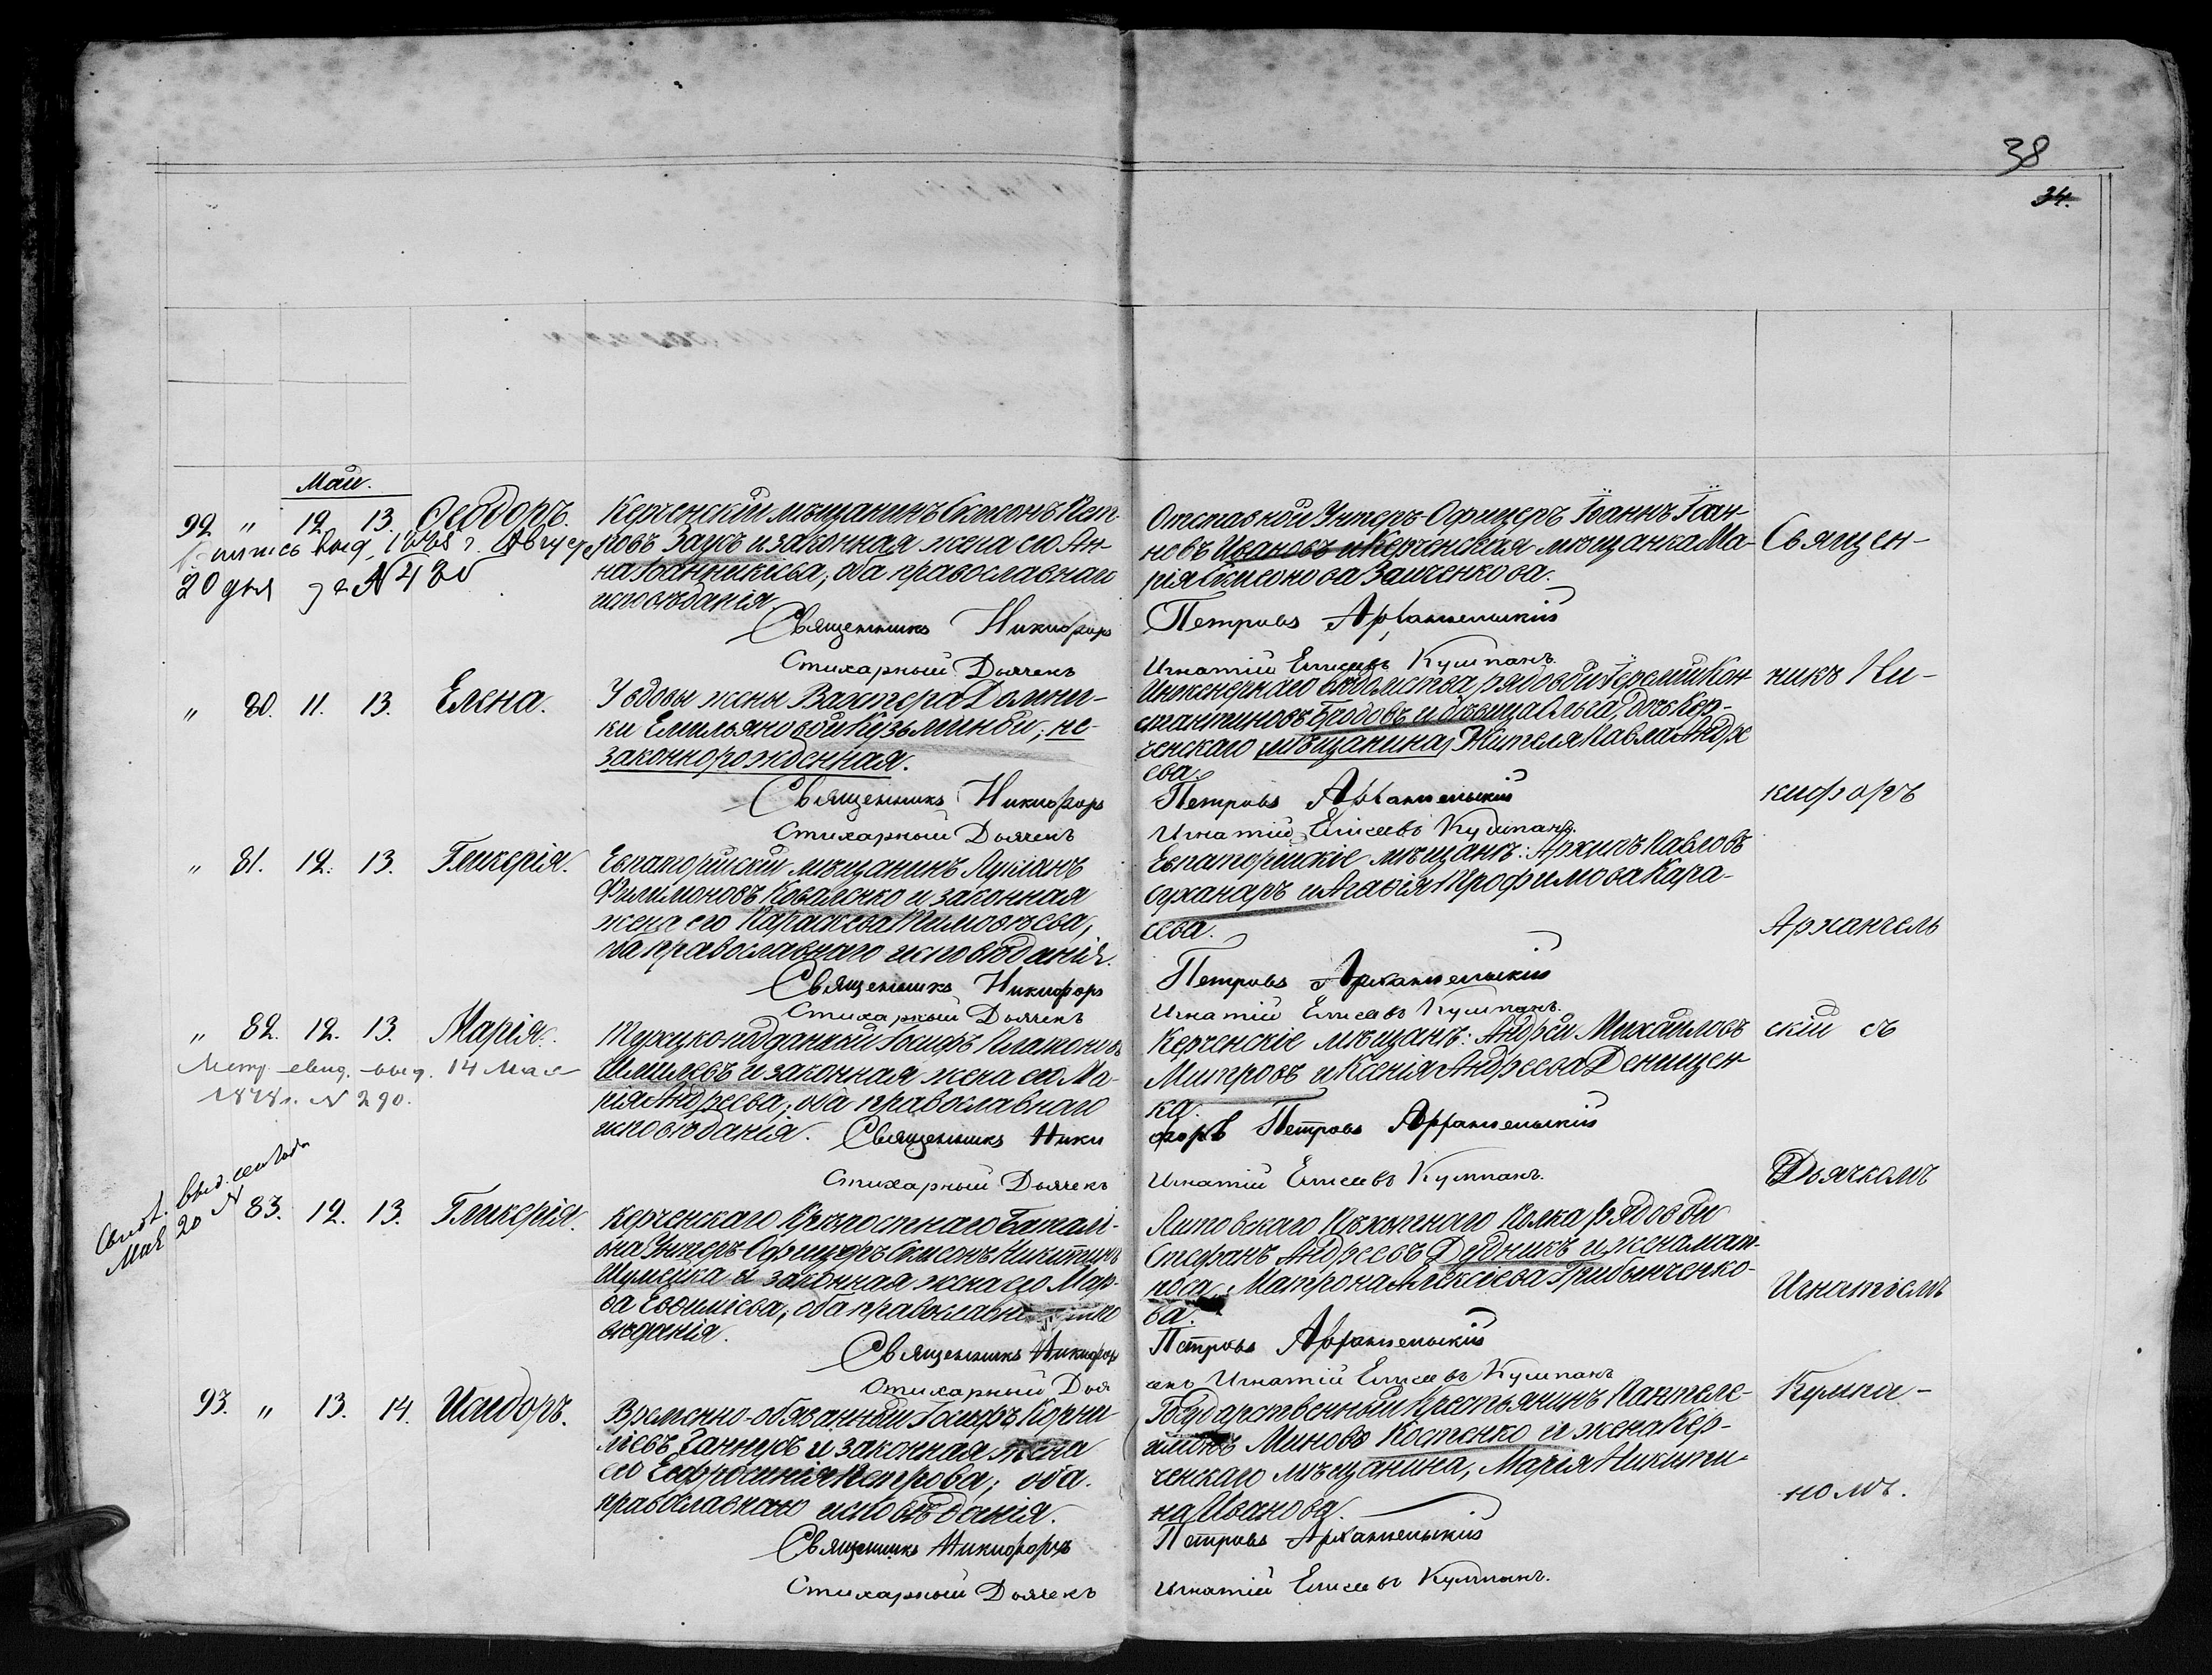 38
34.
Май.
92 " 12 13. Ѳеодоръ.
20 дня за № 480
Керченскій мѣщанинъ Симеонъ Пет-
ровъ Заусъ и законная жена его Ан-
на Іоанникіева, оба православнаго
исповѣданія
Священникъ Никифоръ
Стихарный Дьячекъ
Отставной Унтеръ-Офицеръ Іоаннъ Іоан-
новъ Ивановъ и Керченская мѣщанка Ма-
рія Симеонова Заиченкова.
Петровъ Архангельскій
Игнатій Елисеевъ Кумпанъ.
" 80. 11. 13. Елена.
У вдовы жены Вахтера Домни-
ки Емильяновой Кузьминой, не-
законнорожденная.
Священникъ Никифоръ
Стихарный Дьячекъ
Инженернаго вѣдомства рядовой Іеремій Кон
стантиновъ Бродовъ и дѣвица Ольга, дочь Кер-
ченскаго мѣщанина, Жителя Павла Андре
ева.
Петровъ Архангельскій
Игнатій Елисеевъ Кумпанъ.
" 81. 12. 13. Гликерія.
Евпаторійскій мѣщанинъ Лукіанъ
Филимоновъ Коваленко и законная
жена его Параскева Тимоѳѣева,
оба православнаго исповѣданія.
Священникъ Никифоръ
Стихарный Дьячекъ
Евпаторійскіе мѣщане: Архипъ Павловъ
Сухаларъ и Агаѳія Трофимова Кара-
сева.
Петровъ Архангельскій
Игнатій Елисеевъ Кумпанъ.
" 82. 12. 13. Марія.
Метр. свид. выд. 14 Мая
1878 г. № 290.
Турецко-подданный Іосифъ Платоновъ
Шмилевъ и законная жена его Ма-
рія Андреева, оба православнаго
исповѣданія. Священникъ Ники
Стихарный Дьячекъ
Керченскіе мѣщане: Андрей Михайловъ
Митровъ и Ксенія Андреева Денищен
ка.
форъ Петровъ Архангельскій
Игнатій Елисеевъ Кумпанъ.
Мая 20 №
83. 12. 13. Гликерія.
Керченскаго Крѣпостнаго Баталі-
она Унтеръ-Офицеръ Симеонъ Никитинъ
Шумейка и законная жена его Мар-
ѳа Евѳиміева, оба православн испо
вѣданія.
Священникъ Никифоръ
Стихарный Дья
Литовскаго Пѣхотнаго Полка рядовой
Стефанъ Андреевъ Дудникъ и жена мат-
роса, Матрона Алексіева Грибынченко-
ва.
Петровъ Архангельскій
чекъ Игнатій Елисеевъ Кумпанъ
93. " 13. 14. Исидоръ.
Временно-обязанный Іосифъ Корни
ліевъ Ганнусъ и законная жена
его Евфросинія Петрова, оба
православнаго исповѣданія.
Священникъ Никифоръ
Стихарный Дьячекъ
Государственный Крестьянинъ Пантеле-
имонъ Миновъ Костенко и жена Кер-
ченскаго мѣщанина, Марія Никити-
на Иванова.
Петровъ Архангельскій
Игнатій Елисеевъ Кумпанъ.
Священ-
никъ Ни-
кифоръ
Архангель
скій съ
Дьячкомъ
Игнатіемъ
Кумпа-
номъ.